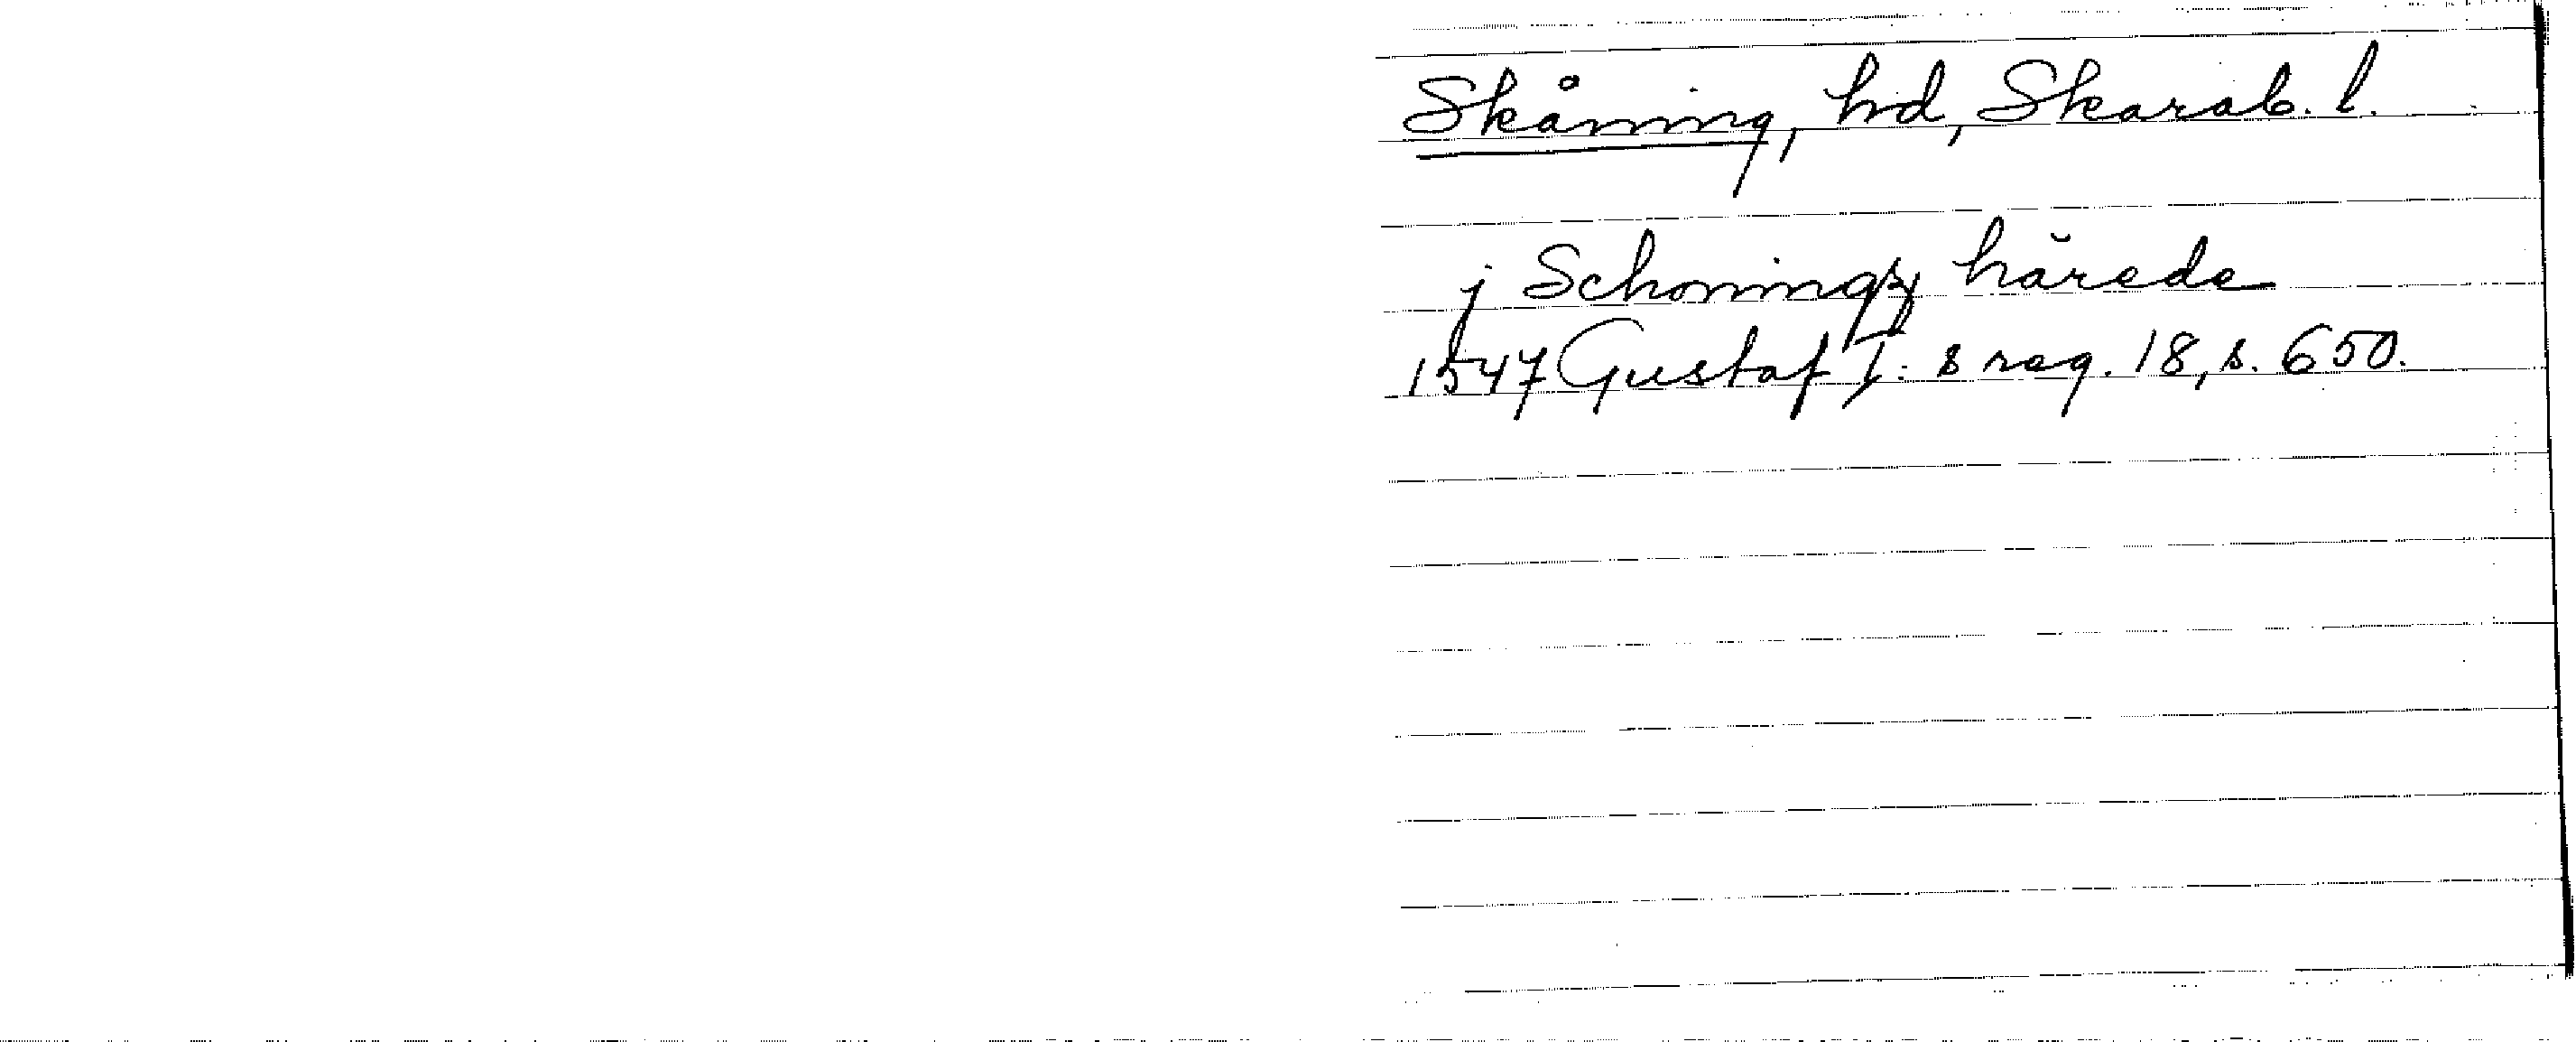 Skåning, hd, Skarab. l.
j Schoningz härede
1547 Gustaf I: s reg. 18, s. 650.